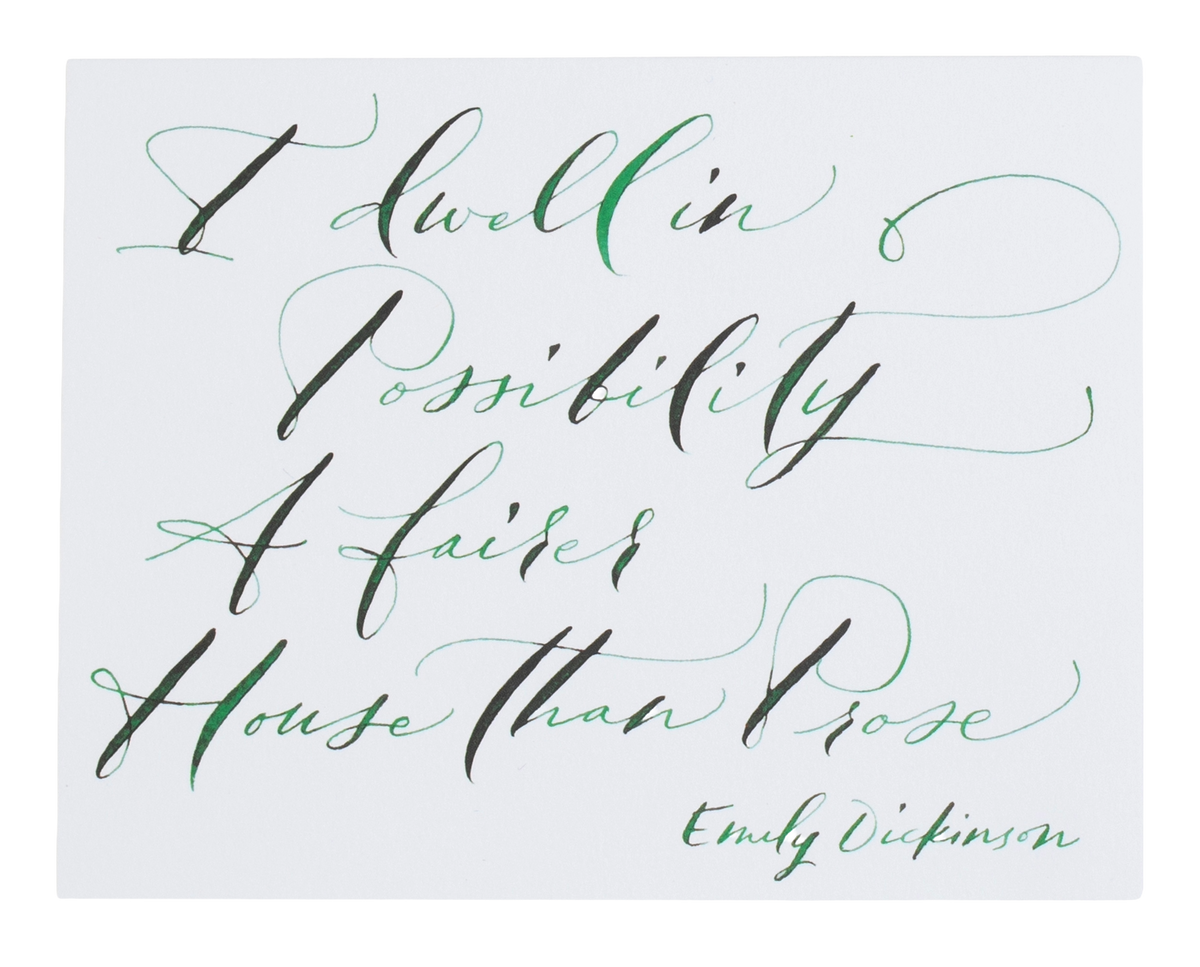 I dwell in
Possibility
A fairer
House than Prose
Emily Dickinson